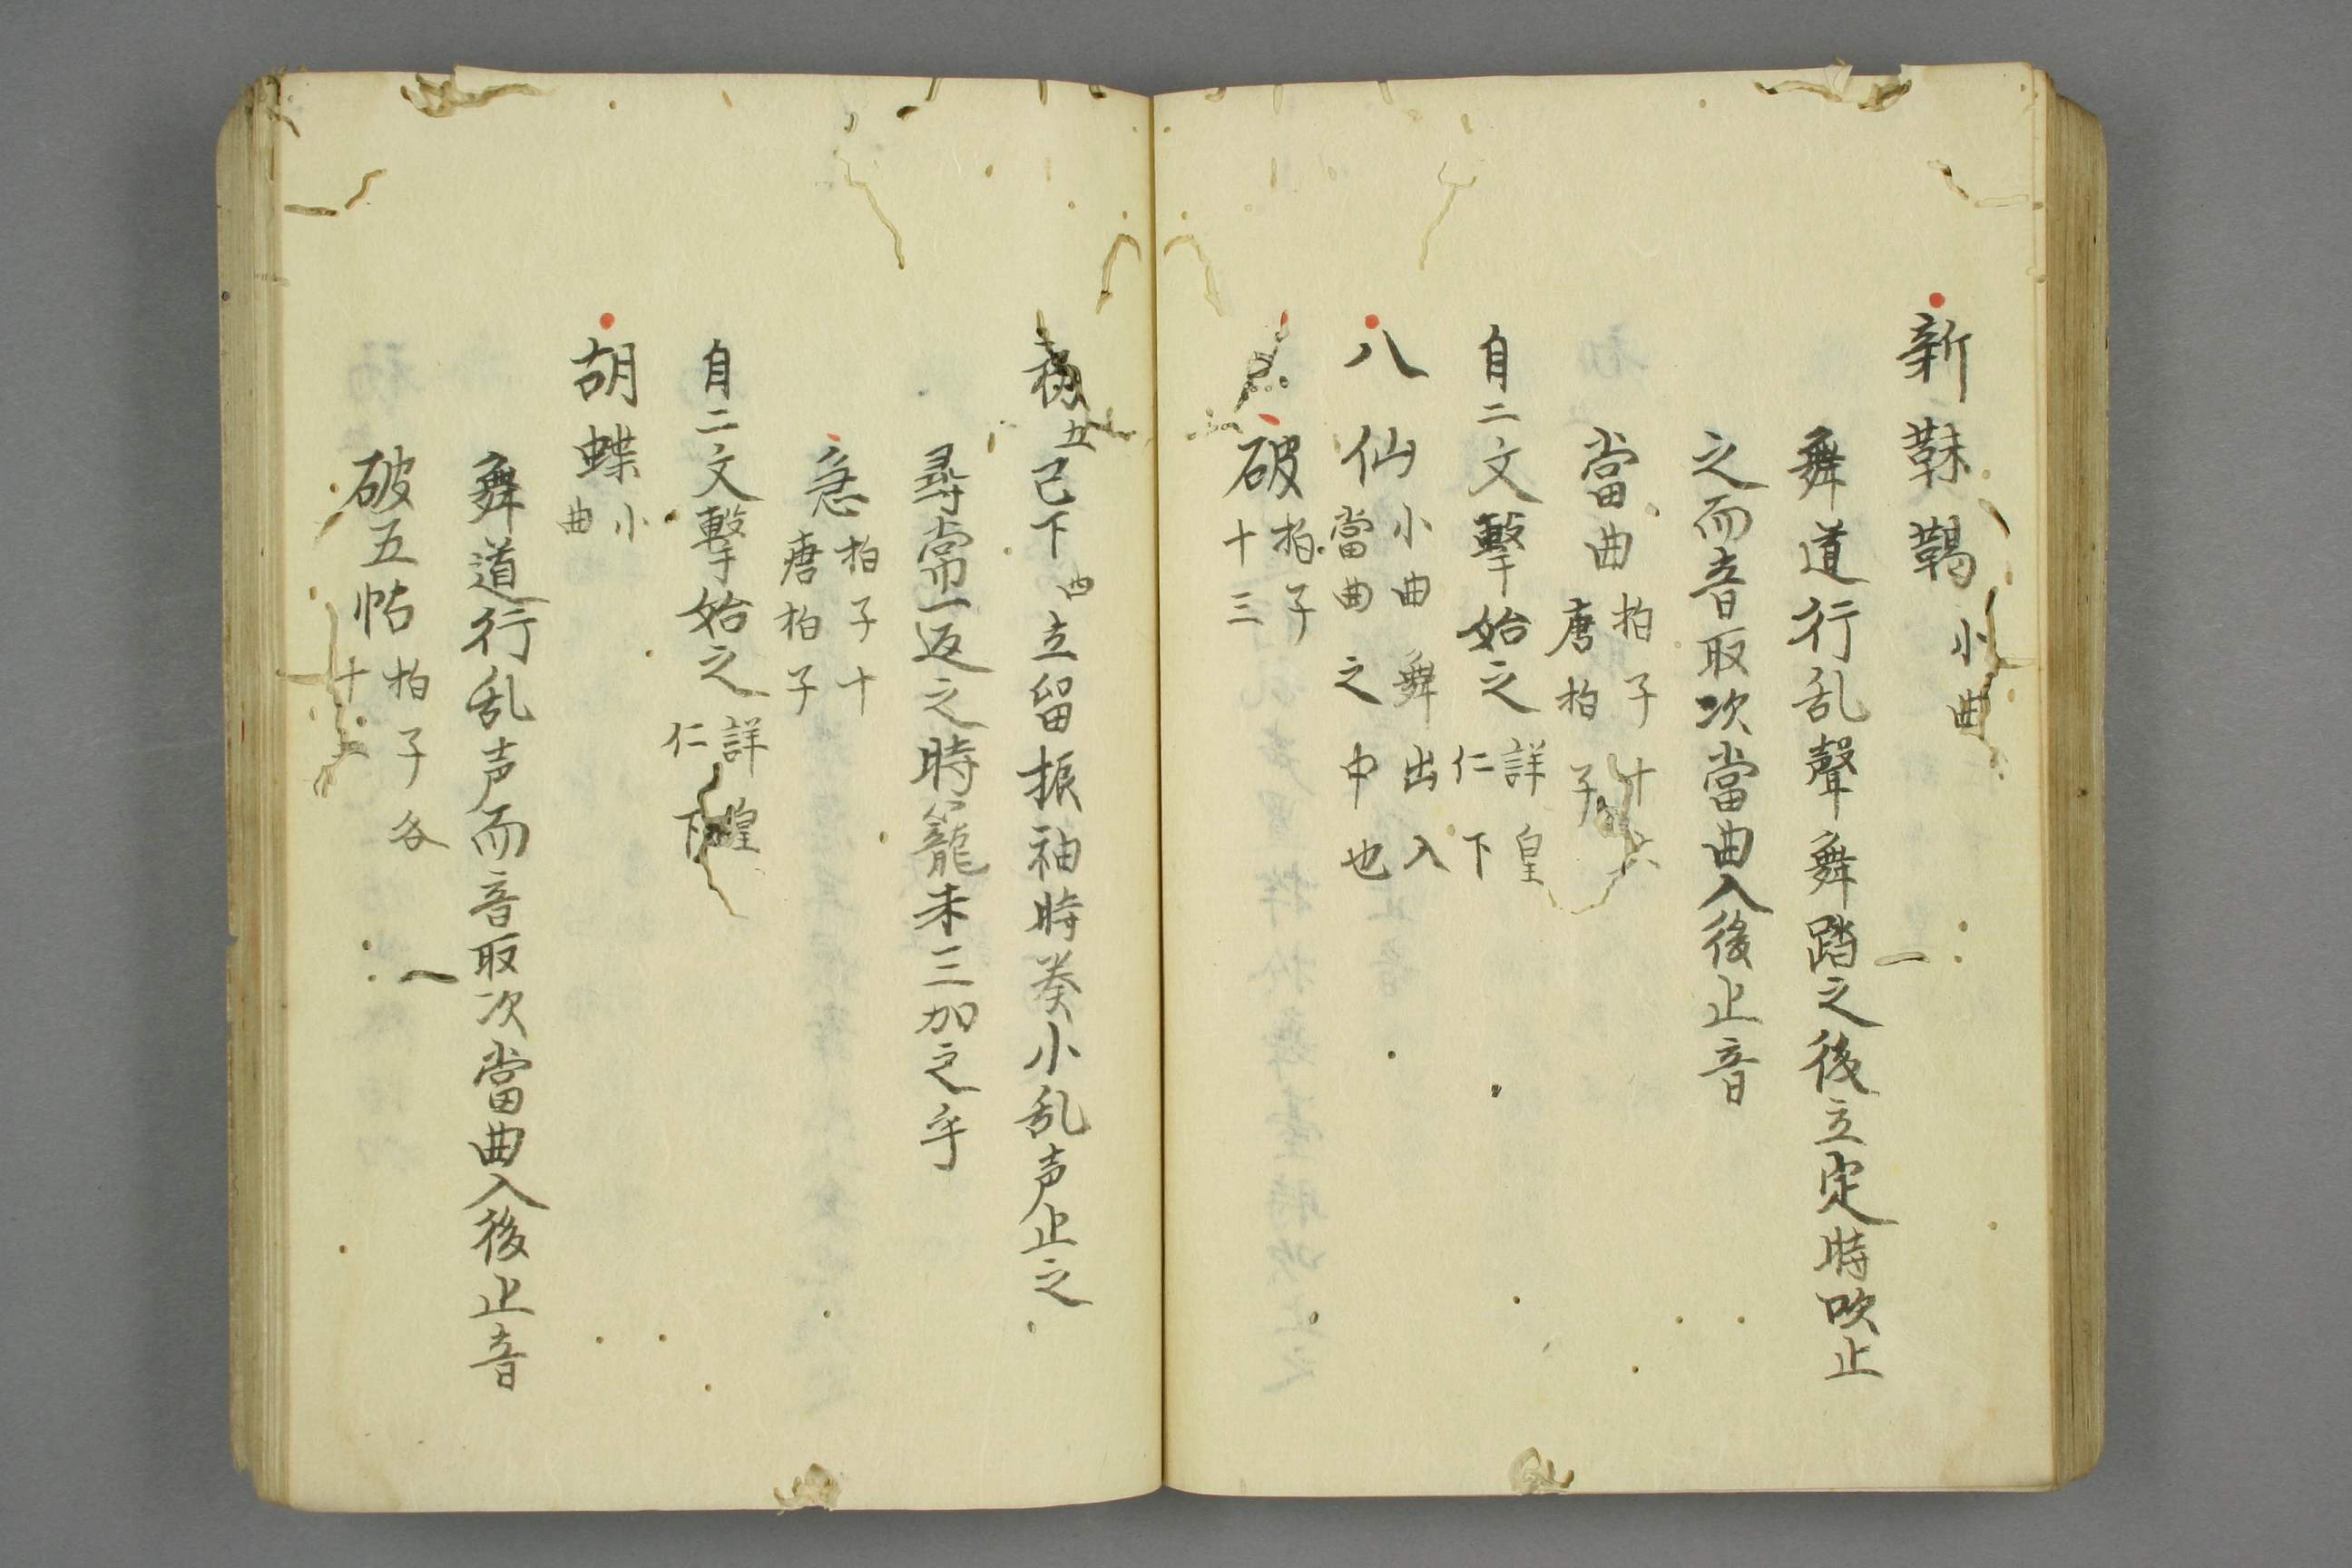 新靺鞨 小曲
舞道行乱聲舞踏之後立定時吹止
之而音取次當曲入後止音
當曲 拍子十六
唐拍子
自二文擊始之 詳皇
仁下
八仙 小曲舞出入
當曲之中也
破 拍子
十三
五已下 立留振袖時奏小乱声止之
尋常一返之時籠未三加之乎
急 拍子十
唐拍子
自二文擊始之 詳皇
仁下
胡蝶 小
曲
舞道行乱声而音取次當曲入後止音
破五帖 拍子各
十二